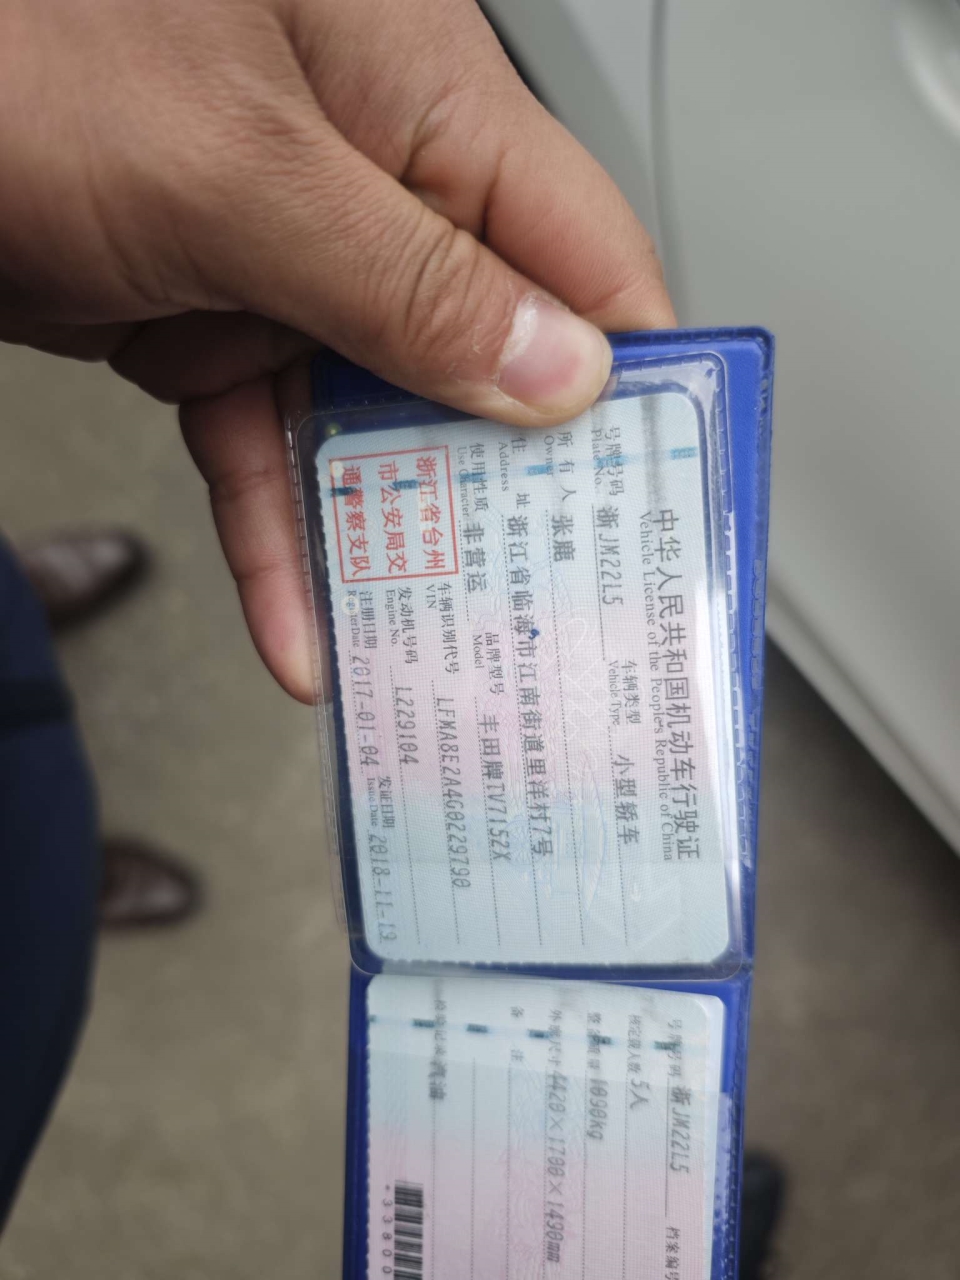 中华人民共和国机动车行驶证
Vehicle License of the People's Republic of China
号牌号码 浙JM22L5 车辆类型 小型轿车
Plate No. Vehicle Type
所有人 张庸
Owner
住址 浙江省临海市江南街道里洋村7号
Address
使用性质 非营运 品牌型号 丰田牌TV7152X
Use Character Model
浙江省台州
市公安局交
通警察支队
车辆识别代号 LFMA8E2A4G0229790
VIN
发动机号码 L229104
Engine No.
注册日期 2017-01-04 发证日期 2018-11-19
Register Date Issue Date
号牌号码 浙JM22L5 档案编号
核定载人数 5人
整备质量 1090kg
外廓尺寸 4420×1700×1490mm
备注
检验记录 汽油
*33800